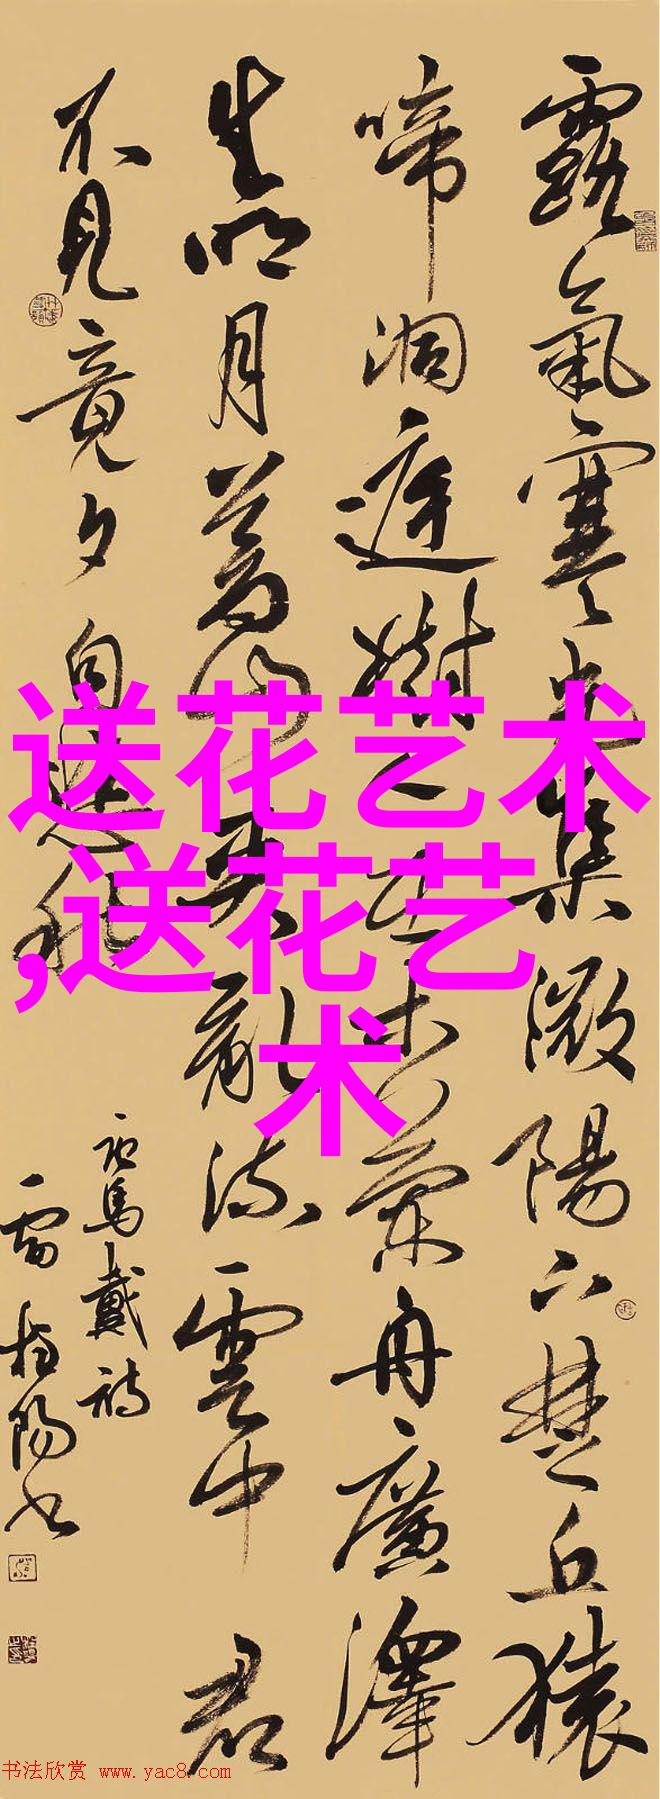 露氣寒光集微陽下楚丘猿
啼洞庭樹人在木蘭舟廣澤
生明月蒼山夾亂流雲中君
不見竟夕自悲秋
唐馬戴詩
雷陽书
送花艺术
,送花艺
术
书法欣赏 www.yac8.com